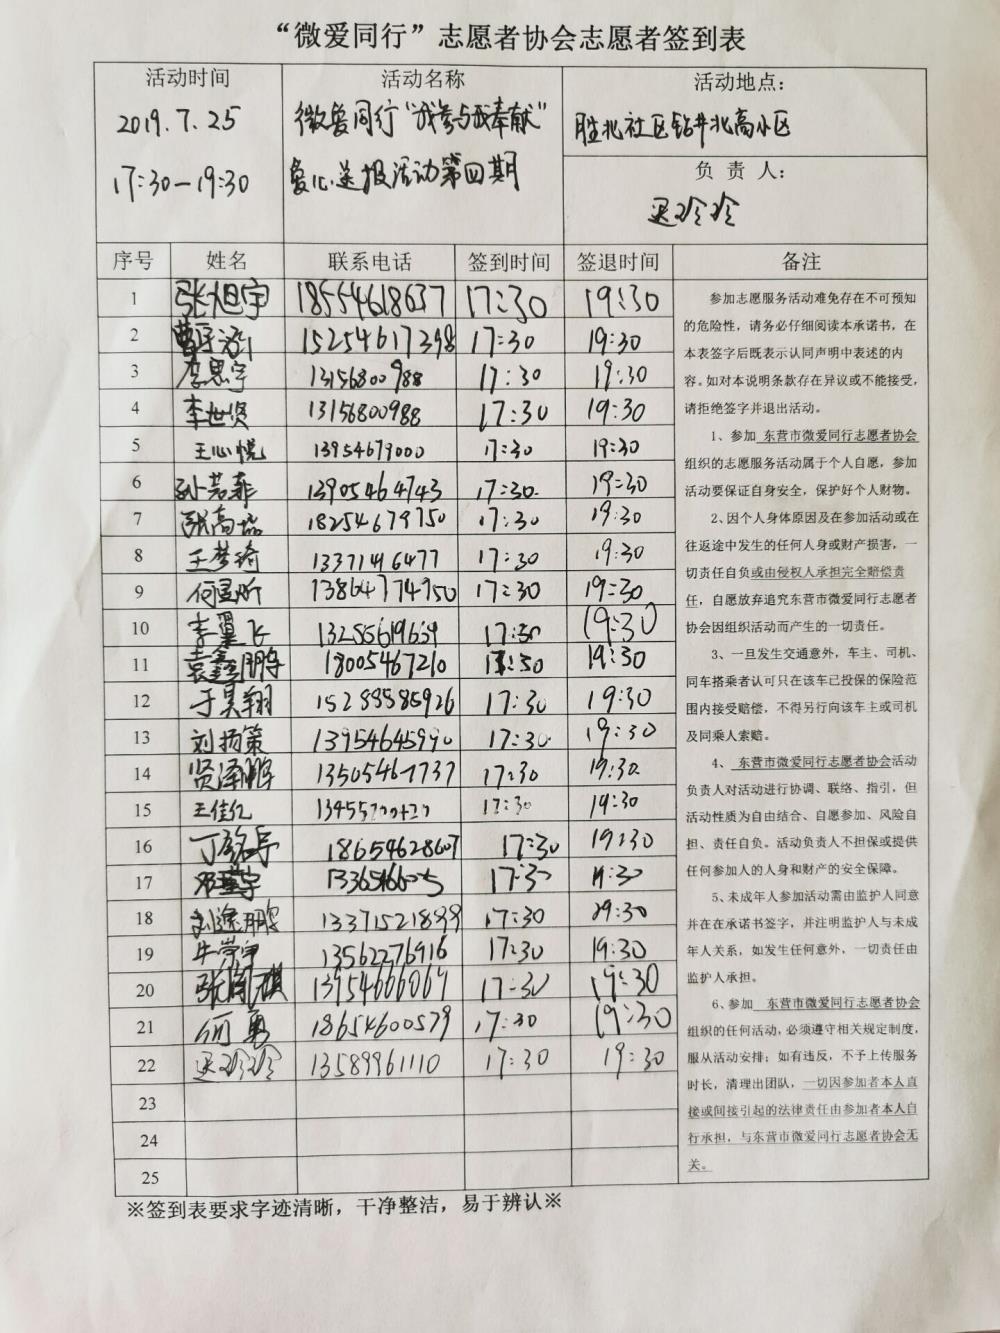 “微爱同行”志愿者协会志愿者签到表
活动时间
2019.7.25
17:30—19:30
活动名称
微爱同行“我参与我奉献”
爱心送报活动第四期
活动地点：
胜北社区钻井北高小区
负 责 人：
玲玲
序号 姓名 联系电话 签到时间 签退时间 备注
1 张旭宇 18554618637 17:30 19:30
2 曹 15254617398 17:30 19:30
3 李思宇 13156800988 17:30 19:30
4 李世贤 13156800988 17:30 19:30
5 王心悦 13954679000 17:30 19:30
6 孙若菲 13905464743 17:30 19:30
7 张高 18254679750 17:30 19:30
8 王梦琦 13371496477 17:30 19:30
9 何昱昕 13864774950 17:30 19:30
10 李翼飞 13255619659 17:30 19:30
11 袁鑫鹏 18005467210 17:30 19:30
12 于昊翔 15289585926 17:30 19:30
13 刘扬策 13954645990 17:30 19:30
14 贤泽鹏 13505461737 17:30 19:30
15 王佳亿 17:30 19:30
16 丁 18654628607 17:30 19:30
17 宇 17:30 19:30
18 刘逸鹏 13371521899 17:30 19:30
19 牛 13562276916 17:30 19:30
20 张 祺 13954666069 17:30 19:30
21 何勇 18654600579 17:30 19:30
22 玲玲 13589961110 17:30 19:30
23
24
25
参加志愿服务活动难免存在不可预知
的危险性，请务必仔细阅读本承诺书，在
本表签字后既表示认同声明中表述的内
容。如对本说明条款存在异议或不能接受，
请拒绝签字并退出活动。
1、参加 东营市微爱同行志愿者协会
组织的志愿服务活动属于个人自愿，参加
活动要保证自身安全，保护好个人财物。
2、因个人身体原因及在参加活动或在
往返途中发生的任何人身或财产损害，一
切责任自负或由侵权人承担完全赔偿责
任，自愿放弃追究东营市微爱同行志愿者
协会因组织活动而产生的一切责任。
3、一旦发生交通意外，车主、司机、
同车搭乘者认可只在该车已投保的保险范
围内接受赔偿，不得另行向该车主或司机
及同乘人索赔。
4、 东营市微爱同行志愿者协会活动
负责人对活动进行协调、联络、指引，但
活动性质为自由结合、自愿参加、风险自
担、责任自负。活动负责人不担保或提供
任何参加人的人身和财产的安全保障。
5、未成年人参加活动需由监护人同意
并在在承诺书签字，并注明监护人与未成
年人关系，如发生任何意外，一切责任由
监护人承担。
6、参加 东营市微爱同行志愿者协会
组织的任何活动，必须遵守相关规定制度，
服从活动安排；如有违反，不予上传服务
时长，清理出团队，一切因参加者本人直
接或间接引起的法律责任由参加者本人自
行承担，与东营市微爱同行志愿者协会无
关。
※签到表要求字迹清晰，干净整洁，易于辨认※